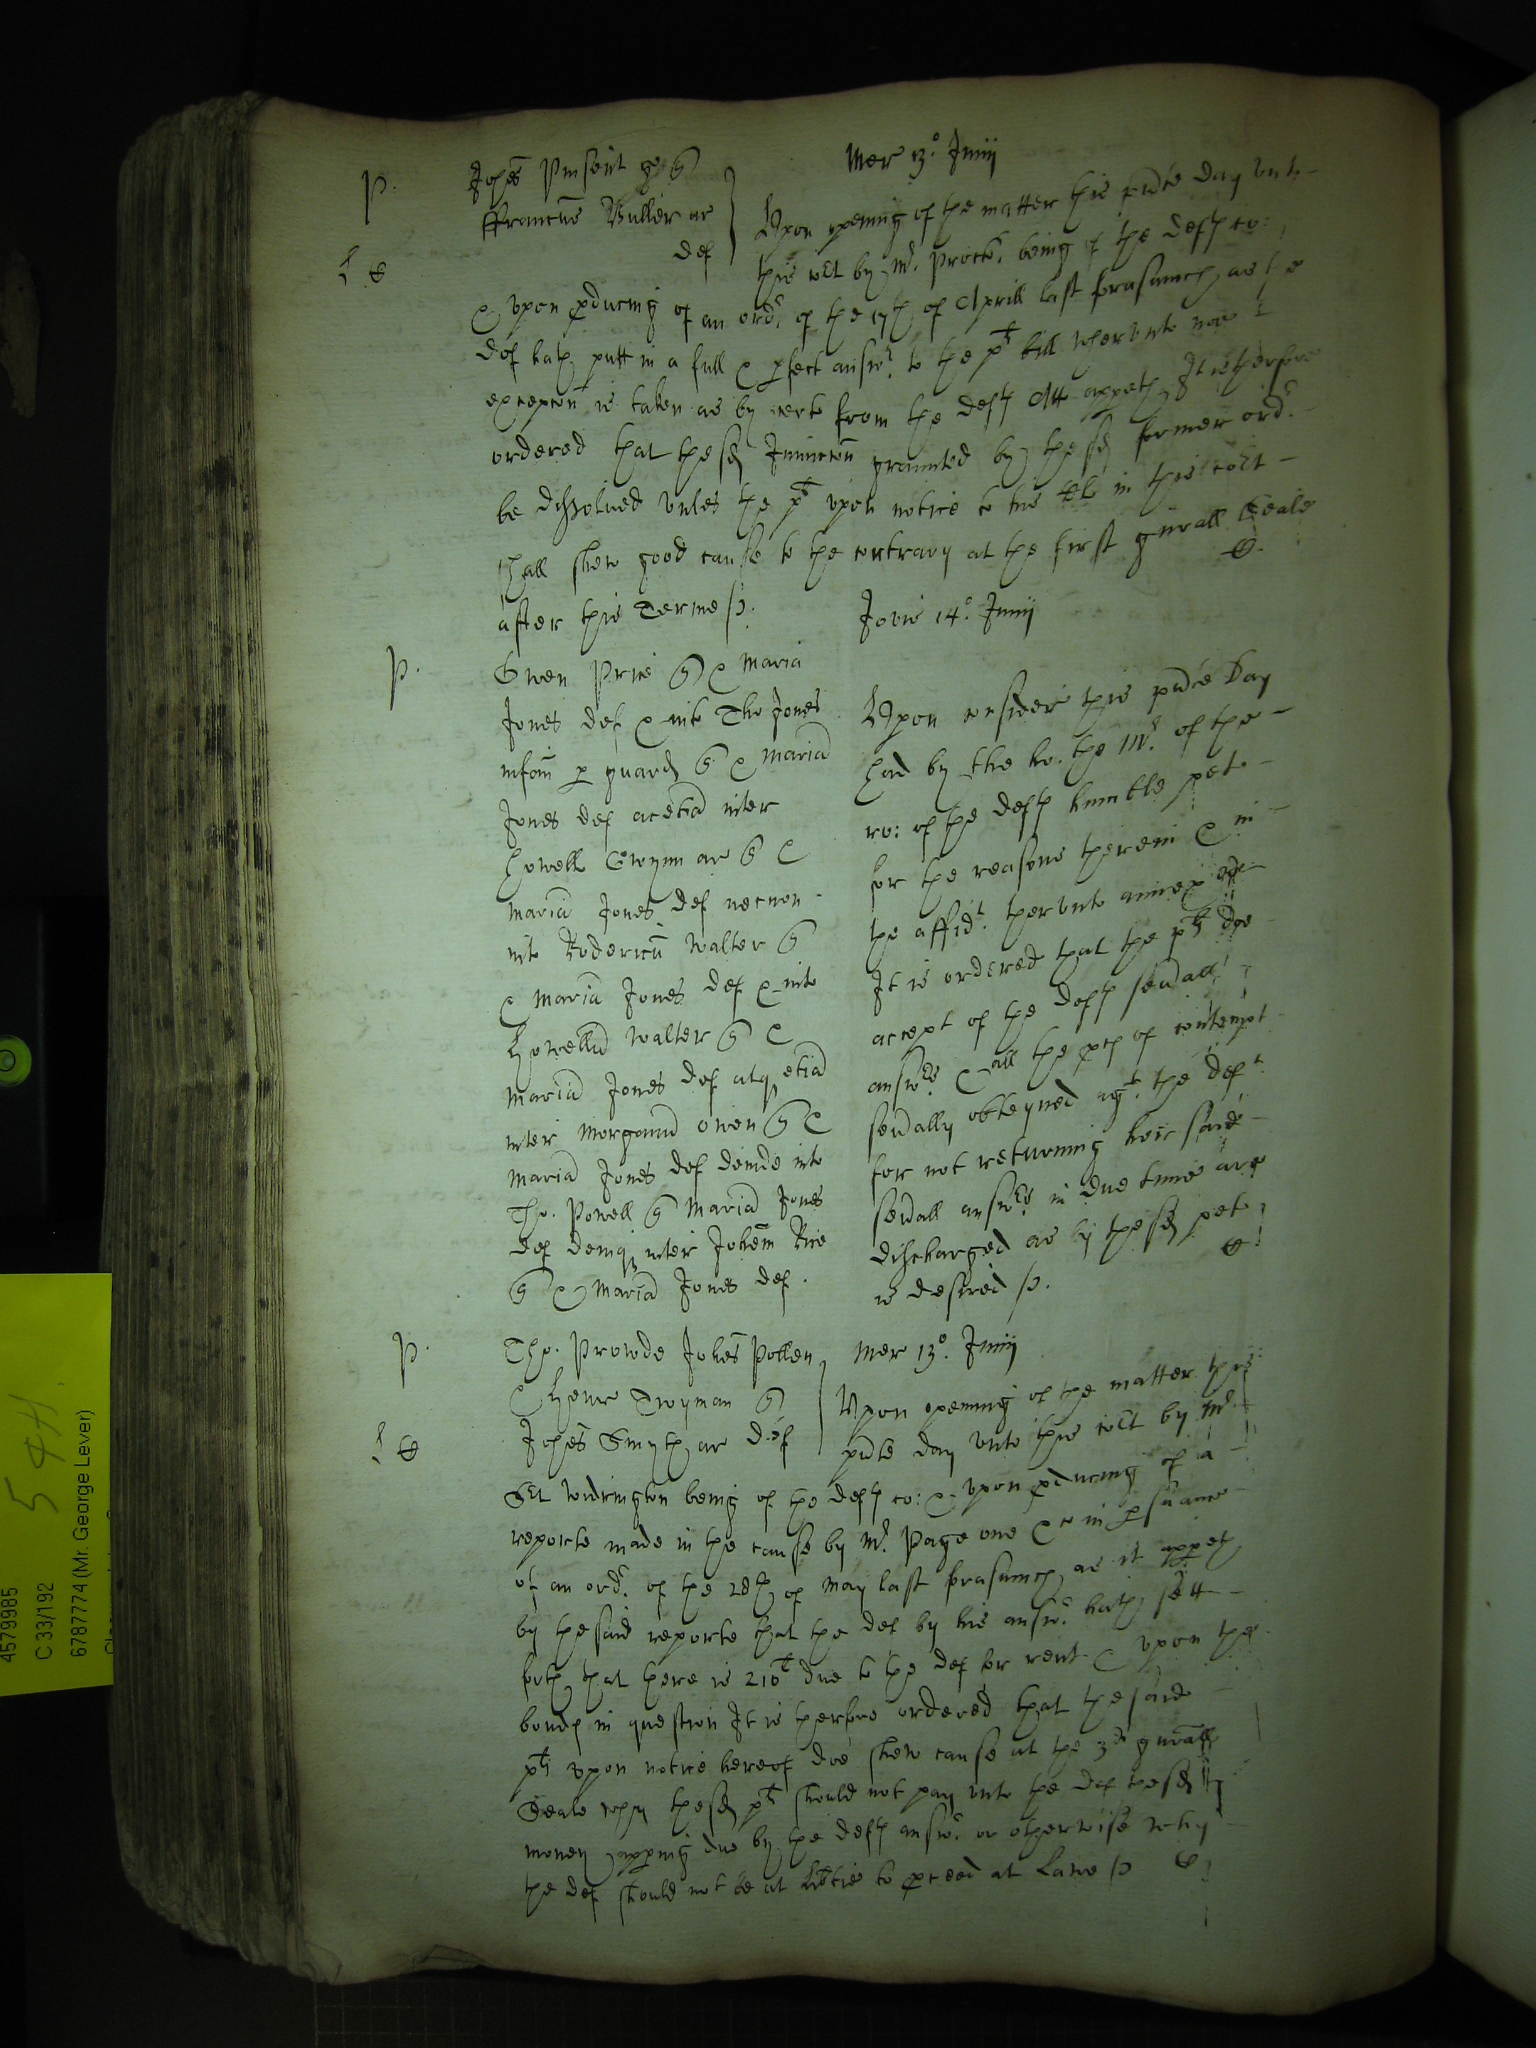 Mer 13º Junij
P.
Johes Pinsent gen q
ffranciscus Buller ar
def
Upon opening of the matter this p'nte day unto
this Co'rt by Mr. Procter being of the defts co:
& upon p'ducing of an ordr. of the 17th of Aprill last forasmuch as the
def hath putt in a full & p'fect answr. to the plt bill wherunto noe
excepcon is taken as by certe from the defts Atto appeth It is therfore
ordered that the sd Iniunccon graunted by the sd former ordr.
be dissolued vnles the plt vpon notice to his Clk in this Co'rt
shall shew good cause to the contrary at the first gn'rall Seale
after this Terme /.
Jovis 14º Junij
P.
Gwen Price q & Maria
Jones def & int Tho Jones
infan p guard q & Maria
Jones def acetia inter
Howell Gwynn ar q &
Maria Jones def necnon
int Rodericu Walter q
& Maria Jones def & int
Howellu Walter q &
Maria Jones def atq etia
inter Morganu Owen q &
Maria Jones def deinde int
Tho. Powell q Maria Jones
def deniq inter Johem Rice
q & Maria Jones def.
Upon consider this p'nte day
had by the ho. the Mr. of the
ro: of the defts humble pet
for the reasons therein & in
the affidt. therunto annexed
It is ordered that the plts doe
accept of the defts seu'all
answrs & all the pces of contempt
seu'ally obteyned agt. the deft
for not returning her said
seu'all answrs in due time are
discharged as by the sd pet
is desired /.
P.
Tho. Prowde Johes Pollen
& Henr Twyman q
Johes Smyth ar def
Mer 13º. Junij
Upon opening of the matter this
p'nte day unto this Co'rt by Mr.
Srt Widrington being of the defts co: & vpon p'ducing of a
reporte made in the cause by Mr. Page one &c in p'suance
of an ordr. of the 28th of May last forasmuch as it appeth
by the said reporte that the def by his answr. hath sett
forth that there is 210l due to the def for rent & vpon the
bonds in question It is therfore ordered that the said
plts vpon notice hereof doe shew cause at the 3d gn'rall
Seale why the sd plts should not pay vnto the def the sd
money appering due by the defts answr. or otherwise why
the def should not be at lib'tie to p'ceed at Lawe /.
4579985
C 33/192
6787774 (Mr. George Lever)
544